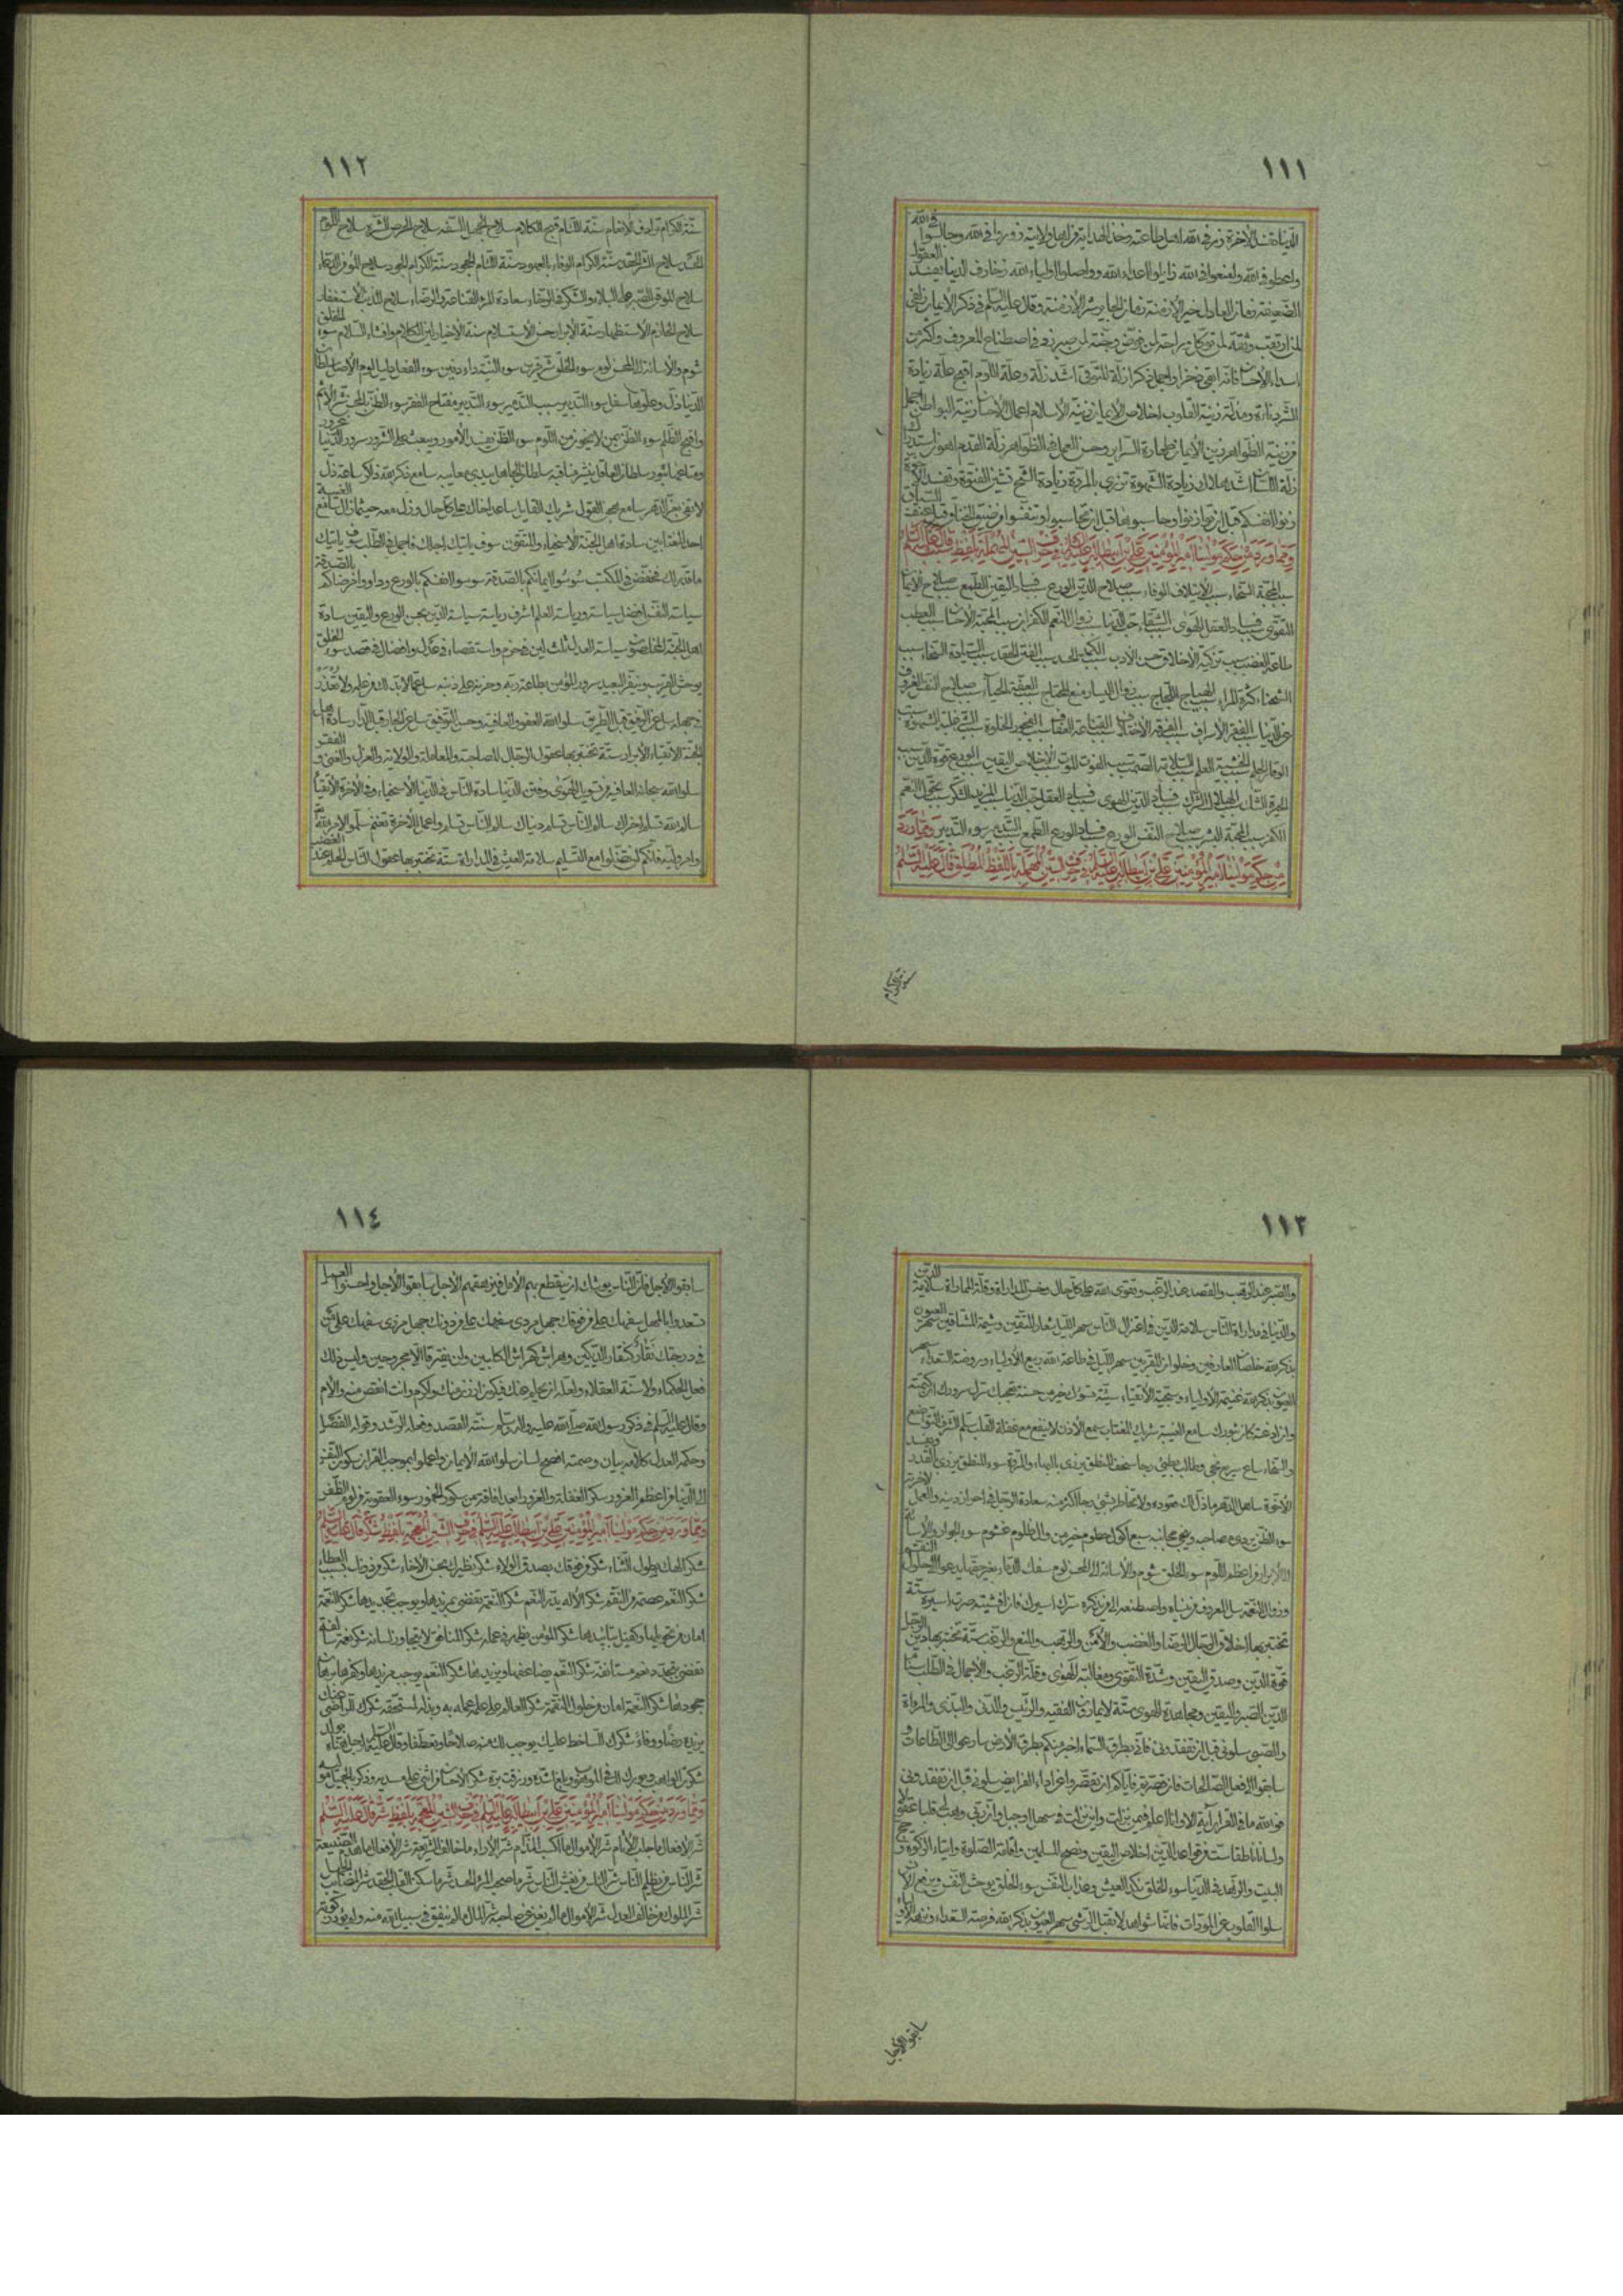 ١١١
الدنيا تفسد الآخرة زر في الله اهل طاعته وخذ الهداية من اهل ولايته زوروا في الله وجالسوا في الله
واعطوا في الله وامنعوا في الله زايلوا اعداء الله وواصلوا اولياء الله زخارف الدنيا تفسد العقول
الضعيفة زمان العادل خير الأزمنة زمان الجاير شر الأزمنة وقال عليه السلم في ذكر الايمان زلفى
لمن ارتقب وثقة لمن توكل وراحة لمن فوض وجنة لمن صبر زد في اصطناع المعروف واكثر من
اسداء الاحسان فانه ابقى ذخرا واجمل ذكرا زلة المتوقي اشد زلة وعلة اللوم اقبح علة زيادة
الشر دناءة ومذلة زينة القلوب اخلاص الايمان زينة الاسلام اعمال الاحسان زينة البواطن اجمل
من زينة الظواهر زين الايمان طهارة السراير وحسن العمل في الظواهر زلة القدم اهون استدراك
زلة اللسان اشد هلاك زيادة الشهوة تزري بالمروة زيادة الشح تشين الفتوة وتفسد الاخوة
زنوا انفسكم قبل ان توازنوا وحاسبوها قبل ان تحاسبوا وتنفسوا من ضيق الخناق قبل عنف السياق
ومما ورد من حكم مولينا امير المؤمنين علي بن ابيطالب عليه السلم في حرف السين المهملة بلفظ سبب قال عليه السلم
سبب المحبة السخاء سبب الايتلاف الوفاء سبب صلاح الدين الورع سبب فساد اليقين الطمع سبب صلاح الايمان
التقوى سبب فساد العقل الهوى سبب الشقاء حب الدنيا سبب زوال النعم الكفران سبب المحبة الاحسان سبب العطب
طاعة الغضب سبب تزكية الاخلاق حسن الأدب سبب الكمد الحسد سبب الفتن الحقد سبب السيادة السخاء سبب
الشحناء كثرة المراء سبب الهياج اللجاج سبب زوال اليسار منع المحتاج سبب العفة الحياء سبب صلاح النفس العزوف
عن الدنيا سبب الفقر الاسراف سبب الفرقة الاختلاف سبب القناعة العفاف سبب الفجور الخلوة سبب الشره غلبة الشهوة سبب
الوقار الحلم سبب الخشية العلم سبب السلامة الصمت سبب الفوت الموت سبب الاخلاص اليقين سبب الورع قوة الدين سبب
الحيرة الشك سبب الهلاك الشرك سبب فساد الدين الهوى سبب فساد العقل حب الدنيا سبب المزيد الشكر سبب تحول النعم
الكفر سبب المحبة البشر سبب صلاح النفس الورع سبب فساد الورع الطمع سبب التدمير سوء التدبير ومما ورد
من حكم مولينا امير المؤمنين علي بن ابيطالب عليه السلم في حرف السين المهملة باللفظ المطلق قال عليه السلم
سنة الكرام
١١٢
سنة الكرام ترادف الانعام سنة اللئام قبح الكلام سلاح الجهل السفه سلاح الحرص الشره سلاح اللؤم
الحسد سلاح الشر الحقد سنة الكرام الوفاء بالعهود سنة اللئام الجحود سنة الكرام الجود سلاح المؤمن الدعاء
سلاح الموقن الصبر على البلاء والشكر في الرخاء سعادة المرء القناعة والرضاء سلاح المذنب الاستغفار
سلاح الحازم الاستظهار سنة الابرار حسن الاستسلام سنة الاخيار لين الكلام وافشاء السلام سوء الخلق
شوم والاسائة الى المحسن لوم سوء الخلق شر قرين سوء النية داء دفين سوء الفعل دليل لوم الاصل سلطان
الدنيا ذل وعلوها سفل سوء التدبير سبب التدمير سوء التدبير مفتاح الفقر سوء الظن بالمحسن شر الاثم
واقبح الظلم سوء الظن بمن لا يخون من اللؤم سوء الظن يفسد الأمور ويبعث على الشرور سرور الدنيا غرور
ومتاعها ثبور سلطان العاقل ينشر مناقبه سلطان الجاهل يبدي معايبه سامع ذكر الله ذاكر ساعة ذل
لا تفي بعز الدهر سامع هجر القول شريك القايل ساعد اخاك على كل حال وزل معه حيثما زال سامع الغيبة
احد المغتابين سادة اهل الجنة الاسخياء والمتقون سوف يأتيك اجلك فاجمل في الطلب سوف يأتيك
ما قدر لك فخفض في المكتسب سوسوا ايمانكم بالصدقة سوسوا انفسكم بالورع وداووا مرضاكم بالصدقة
سياسة النفس افضل سياسة ورياسة العلم اشرف رياسة سياسة الدين بحسن الورع واليقين سادة
اهل الجنة المخلصون سياسة العدل ثلث لين في حزم واستقصاء في عدل وافضال في قصد سوء الخلق
يوحش القريب وينفر البعيد سرور المؤمن بطاعة ربه وحزنه على ذنبه سل عما لابد لك من علمه ولا تعذر
في جهله سل عن الرفيق قبل الطريق سلوا الله العفو والعافية وحسن التوفيق سل عن الجار قبل الدار سادة اهل
الجنة الاتقياء الأبرار ستة تختبر بها عقول الرجال المصاحبة والمعاملة والولاية والعزل والغنى والفقر
سلوا الله سبحانه العافية من تسويل الهوى وفتن الدنيا سادة الناس في الدنيا الاسخياء وفي الآخرة الأتقياء
سالم الله تسلم اخراك سالم الناس تسلم دنياك سالم الناس تسلم واعمل للآخرة تغنم سلموا لامر الله
وامر وليه فانكم لن تضلوا مع التسليم سلامة العيش في المداراة ستة تختبر بها عقول الناس الحلم عند الغضب
١١٣
والصبر عند الرهب والقصد عند الرغب وتقوى الله على كل حال وحسن المداراة وقلة المماراة سلامة الدين
والدنيا في مداراة الناس سلامة الدين في اعتزال الناس سهر الليل شعار المتقين وشيمة المشتاقين سهر العيون
بذكر الله خلصان العارفين وحلوان المقربين سهر الليل في طاعة الله ربيع الأولياء وروضة السعداء سهر
العيون بذكر الله غنيمة الأولياء وسجية الأتقياء سيئة تسوئك خير من حسنة تعجبك سرك سرورك ان كتمته
وان اذعته كان ثبورك سامع الغيبة شريك المغتاب سمع الأذن لا ينفع مع غفلة القلب سلم الشرف التواضع
والسخاء ساع سريع نجى وطالب بطيء رجا سخف المنطق يزري بالبهاء والمروة سوء المنطق يزري بالقدر ويفسد
الأخوة ساهل الدهر ما ذل لك قعوده ولا تخاطر بشيء رجاء اكثر منه سعادة الرجل في احراز دينه والعمل لآخرته
سوء الظن يردي صاحبه وينجي مجانبه سبع اكول حطوم خير من وال ظلوم غشوم سوء الجوار والاسائة
الى الأبرار من اعظم اللؤم سوء الخلق شوم والاسائة الى المحسن لوم سفك الدماء بغير حقها يدعو الى حلول النقمة
وزوال النعمة سل المعروف من ينساه واصطنعه الى من يذكره سرك اسيرك فان افشيته صرت اسيره ستة
تختبر بها اخلاق الرجال الرضا والغضب والأمن والرهب والمنع والرغب ستة تختبر بها دين الرجل
قوة الدين وصدق اليقين وشدة التقوى ومغالبة الهوى وقلة الرغب والاجمال في الطلب سنام
الدين الصبر واليقين ومجاهدة الهوى ستة لا يمارون الفقيه والرئيس والدني والبذي والمرأة
والصبي سلوني قبل ان تفقدوني فاني بطرق السماء اخبر منكم بطرق الأرض سارعوا الى الطاعات و
سابقوا الى فعل الصالحات فان قصرتم فاياكم ان تقصروا عن اداء الفرايض سلوني قبل ان تفقدوني
فوالله ما في القرآن آية الا وانا اعلم فيمن نزلت واين نزلت في سهل او جبل وان ربي وهب لي قلبا عقولا
ولسانا ناطقا ست من قواعد الدين اخلاص اليقين ونصح المسلمين واقامة الصلوة وايتاء الزكوة وحج
البيت والزهد في الدنيا سوء الخلق نكد العيش وعذاب النفس سوء الخلق يوحش النفس ويرفع الانس
سلوا القلوب عن المودات فانها شواهد لا تقبل الرشى سهر العيون بذكر الله فرصة السعداء ونزهة الأولياء
سابقوا الأجل
١١٤
سابقوا الأجل فان الناس يوشك ان ينقطع بهم الأمل فيرهقهم الأجل سابقوا الأجل واحسنوا العمل
تسعدوا بالمهل سفهك على من فوقك جهل مردي سفهك على من دونك جهل مزري سفهك على من
في درجتك نقار كنقار الديكين وهراش كهراش الكلبين ولن يفترقا الا مجروحين وليس ذلك
فعل الحكماء ولا سنة العقلاء ولعله ان يحلم عنك فيكون ارزن منك واكرم وانت انقص منه والأم
وقال عليه السلم في ذكر رسول الله صلى الله عليه واله وسلم سنته القصد وفعله الرشد وقوله الفصل
وحكمه العدل كلامه بيان وصمته افصح لسان سلوا الله الايمان واعملوا بموجب القران سكون النفس
الى الدنيا من اعظم الغرور سكر الغفلة والغرور ابعد افاقة من سكر الخمور سوء العقوبة من لؤم الظفر
ومما ورد من حكم مولينا امير المؤمنين علي بن ابيطالب عليه السلم في حرف الشين المعجمة بلفظ شكر قال عليه السلم
شكر الهك بطول الثناء شكر من فوقك بصدق الولاء شكر نظيرك بحسن الاخاء شكر من دونك بسيب العطاء
شكر النعم عصمة من النقم شكر الاله يدر النعم شكر النعمة تقتضي بمزيدها ويوجب تجديدها شكر النعمة
امان من تحويلها وكفيل بتأييدها شكر المؤمن يظهر في عمله شكر المنافق لا يتجاوز لسانه شكر نعمة سالفة
تقضي بتجدد نعم مستانفة شكر النعم يضاعفها ويزيدها شكر النعم يوجب مزيدها وكفرها برهان
جحودها شكر النعمة امان من حلول النقمة شكر العالم على علمه عمله به وبذله لمستحقه شكرك للراضي عنك
يزيده رضا ووفاء شكرك للساخط عليك يوجب لك منه صلاحا وتعطفا وقال عليه السلم لرجل هناه بولد
شكرت الواهب وبورك لك في الموهوب وبلغ اشده ورزقت بره شكر الاحسان من اثنى على مسديه وذكر بالجميل موليه
ومما ورد من حكم مولينا امير المؤمنين علي بن ابيطالب عليه السلم في حرف الشين المعجمة بلفظ شر قال عليه السلم
شر الافعال ما جلب الآثام شر الأموال ما اكسب المذام شر الآراء ما خالف الشريعة شر الافعال ما هدم الصنيعة
شر الناس من يظلم الناس شر الناس من يغش الناس شر ما صحب المرء الحسد شر ما سكن القلب الحقد شر المصائب الجهل
شر الملوك من خالف العدل شر الأموال ما لم يغن عن صاحبه شر المال ما لم ينفق في سبيل الله منه ولم يؤد زكوته